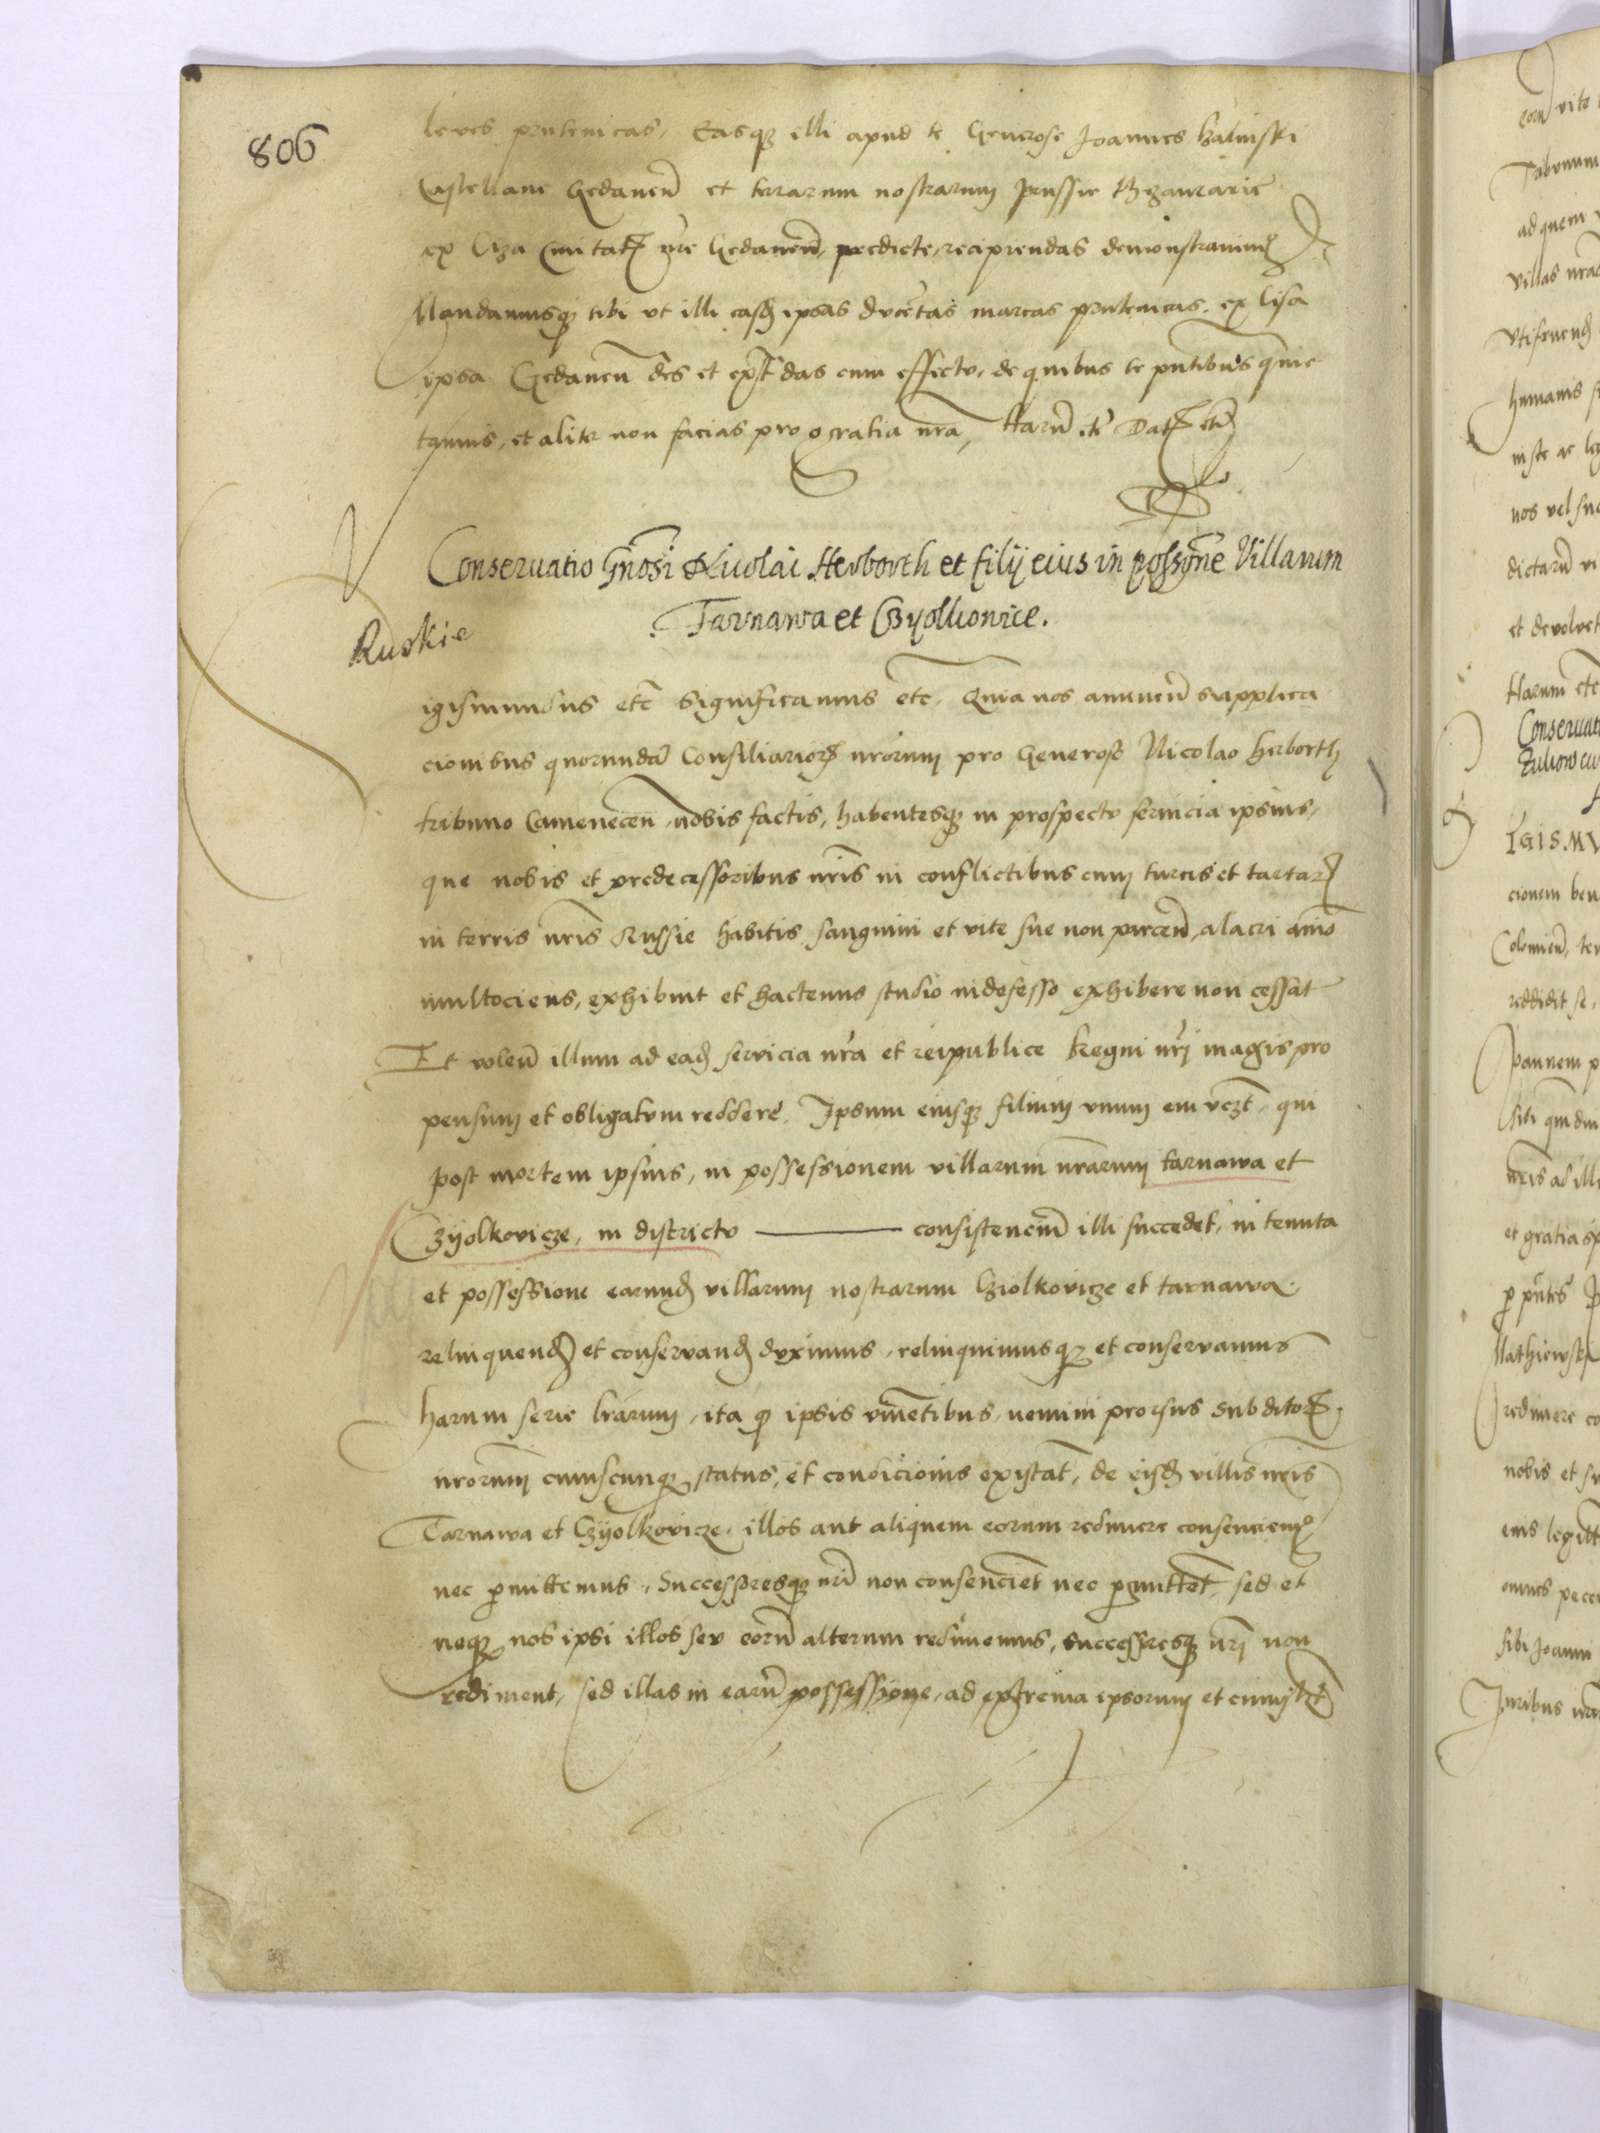 806
leves prutenicas, Easq3 illi apud te Generose Joannes Balinski
Castellane Gedanen̄ et terrarum nostrarum prussie thezaurarie
ex Cisa Civitat; nr̄e Gedanen̄, predicte, recipiendas demonstravim9
Mandamusq3 tibi vt illi easd ipsas ducētas marcas prutenicas, ex Cisa
ipsa Gedanen̄ des et exp das cum effectu, de quibus te pn̄tibus quie
tamus, et aliter non facias pro gratia nr̄a, Harū etc̄ Dat; etc̄
Conservatio Gn̄osi Nicolai Herborth et filij eius in poss̄one Villarum
Tarnawa et Czyolkowice.
Ruskie
igismundus etc̄ Significamus etc. Quia nos annuen̄ supplica
cionibus quorundā Consiliarior; nrōrum pro Generoso Nicolao herborth
tribuno Camenecen̄, nobis factis, habentesq3 in prospecto servicia ipsius,
que nobis et predecessoribus nr̄is in conflictibus cum turcis et tartar;
in terris nr̄is Russie habitis sanguini et vite sue non parcen̄, alacri aīo
multociens, exhibuit et hactenus studio indefesso exhibere non cessat
Et volen̄ illum ad ead servicia nr̄a et reipublice Regni nr̄i magis pro
pensum et obligatum reddere. Ipsum eiusq3 filium unum eum vczt, qui
post mortem ipsius, in possessionem villarum nr̄arum tarnawa et
Czyolkovicze, in districtu ——— consistenciū illi succedet, in tenuta
et possessione earund villarum nostrarum Cziolkovicze et tarnawa
relinquend et conservand duximus, relinquimusq3 et conservamus
harum serie lrārum, ita q ipsis viuētibus, nemini prorsus subditor;
nrōrum cuiuscunq3 status, et condicionis existat, de eisd villis nr̄is
Tarnawa et Czyolkovicze, illos aut aliquem eorum redimere consenciem9
nec pmittemus, Successoresq3 nr̄i non consencient nec pmittēt, sed et
neq3 nos ipsi illos seu eorū alterum redimemus, successoresq3 nr̄i non
rediment, sed illas in earū possessione, ad extrema ipsorum et